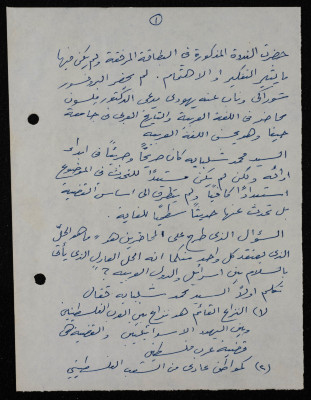 (١)
حضرت الندوة المذكورة في البطاقة المرفقة ولم يكن فيها
ما يثير التفكير او الاهتمام. لم يحضر البروفسور
وناب عنه يهودي يدعى الدكتور
محاضر في اللغة العربية والتاريخ العربي في جامعة
حيفا وهو يحسن اللغة العربية
السيد محمد كان صريحاً وجريئاً في ابداء
ارائه ولكن لم يكن مستعداً للتحدث في الموضوع
استعداداً كافياً ولم يتطرق الى اساس القضية
بل تحدث عنها حديثاً سطحياً للغاية.
السؤال الذي طرح على الحاضرين هو "ما هو الحل
الذي يعتقد كل واحد منكما انه الحل العادل الذي يأتي
بالسلام بين اسرائيل والدول العربية؟"
تكلم اولاً السيد محمد فقال
(١) النزاع القائم هو نزاع بين العرب الفلسطينيين
وبين اليهود الاسرائيليين والقضية هي
قضية عرب فلسطين
(٢) كمواطن عادي من الشعب الفلسطيني